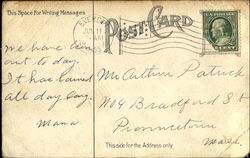 This Space for Writing Messages
POST CARD
JUN 11
we have been
out to day.
It has rained
all day long.
Mama
Mr Arthur Patrick
No 4 Bradford St
Provincetown
Mass.
This side for the Address only